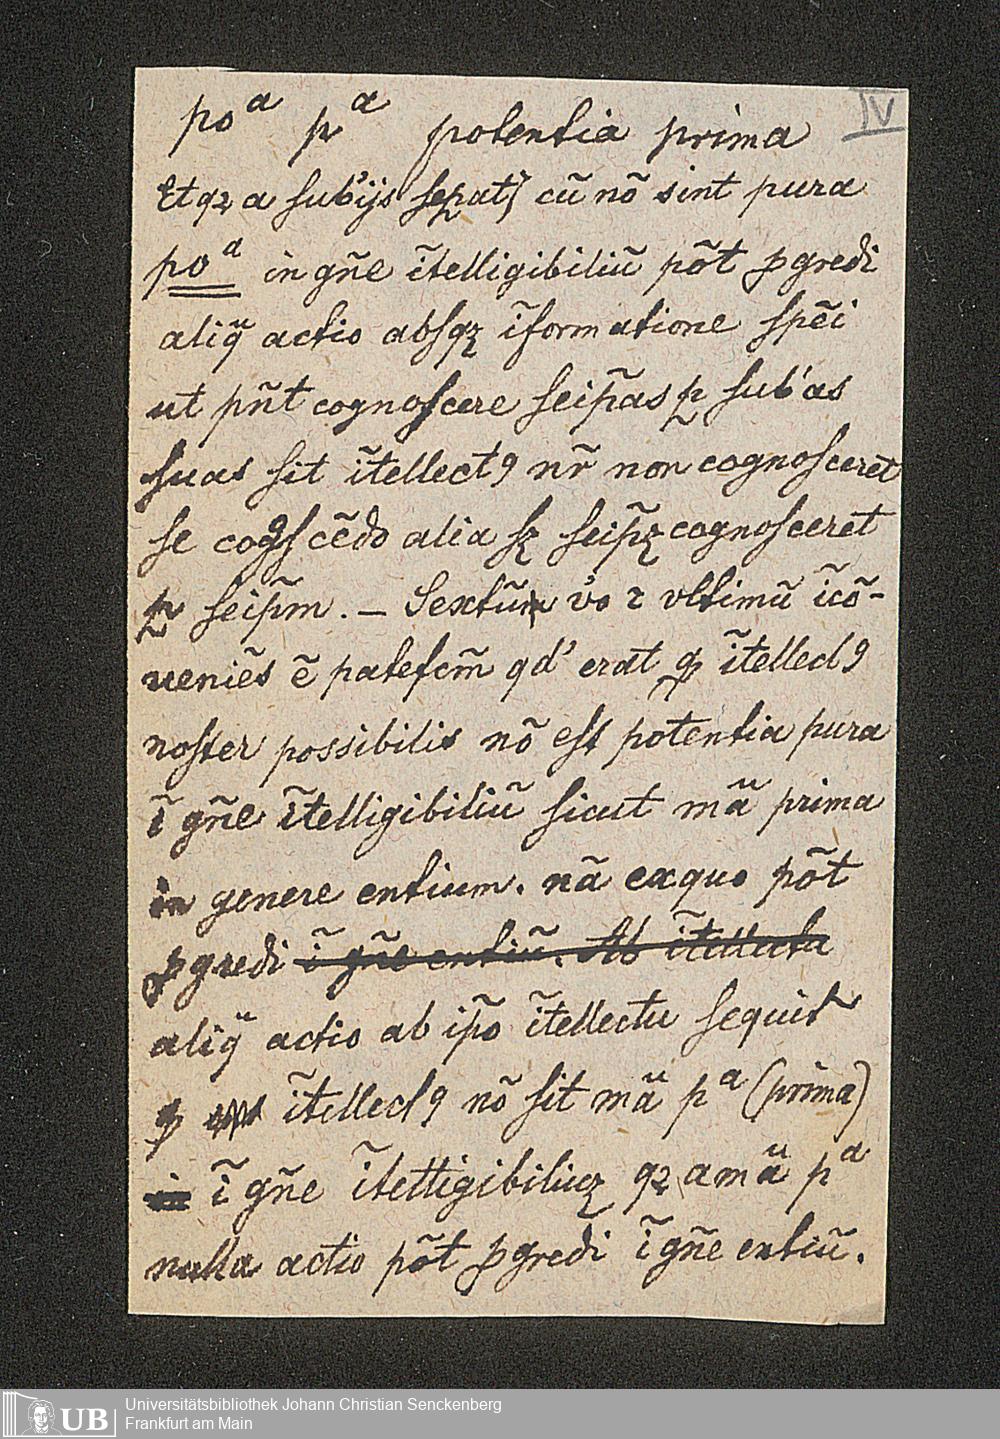 poᵃ pᵃ potentia prima
IV
Et qꝫ a sub'ijs seꝑatꝭ cū nō sint pura
poᵃ in gn̄e ītelligibiliū pōt ꝓgredi
aliq̄ actio absqꝫ īformatione spēi
ut pn̄t cognoscere seip̄as ꝑ sub'as
suas sic ītellectꝯ nr̄ non cognosceret
se cogscēdo alia sꝫ seip̄ꝫ cognosceret
ꝑ seip̄m. – Sextū v̓o ꝛ vltimū īcō-
ueniēs ē patefcm̄ qd' erat ꝙ ītellectꝯ
noster possibilis nō est potentia pura
ī gn̄e ītelligibiliū sicut mā prima
in genere entium. nā exquo pōt
ꝓgredi ī gn̄e entiū. Ab ītellectu
aliq̄ actio ab ip̄o ītellectu sequit᷑
ꝙ ītellectꝯ nō sit mā pᵃ (prima)
in ī gn̄e ītelligibiliuꝫ qꝫ a mā pᵃ
nulla actio pōt ꝓgredi ī gn̄e entiū.
UB
Universitätsbibliothek Johann Christian Senckenberg
Frankfurt am Main